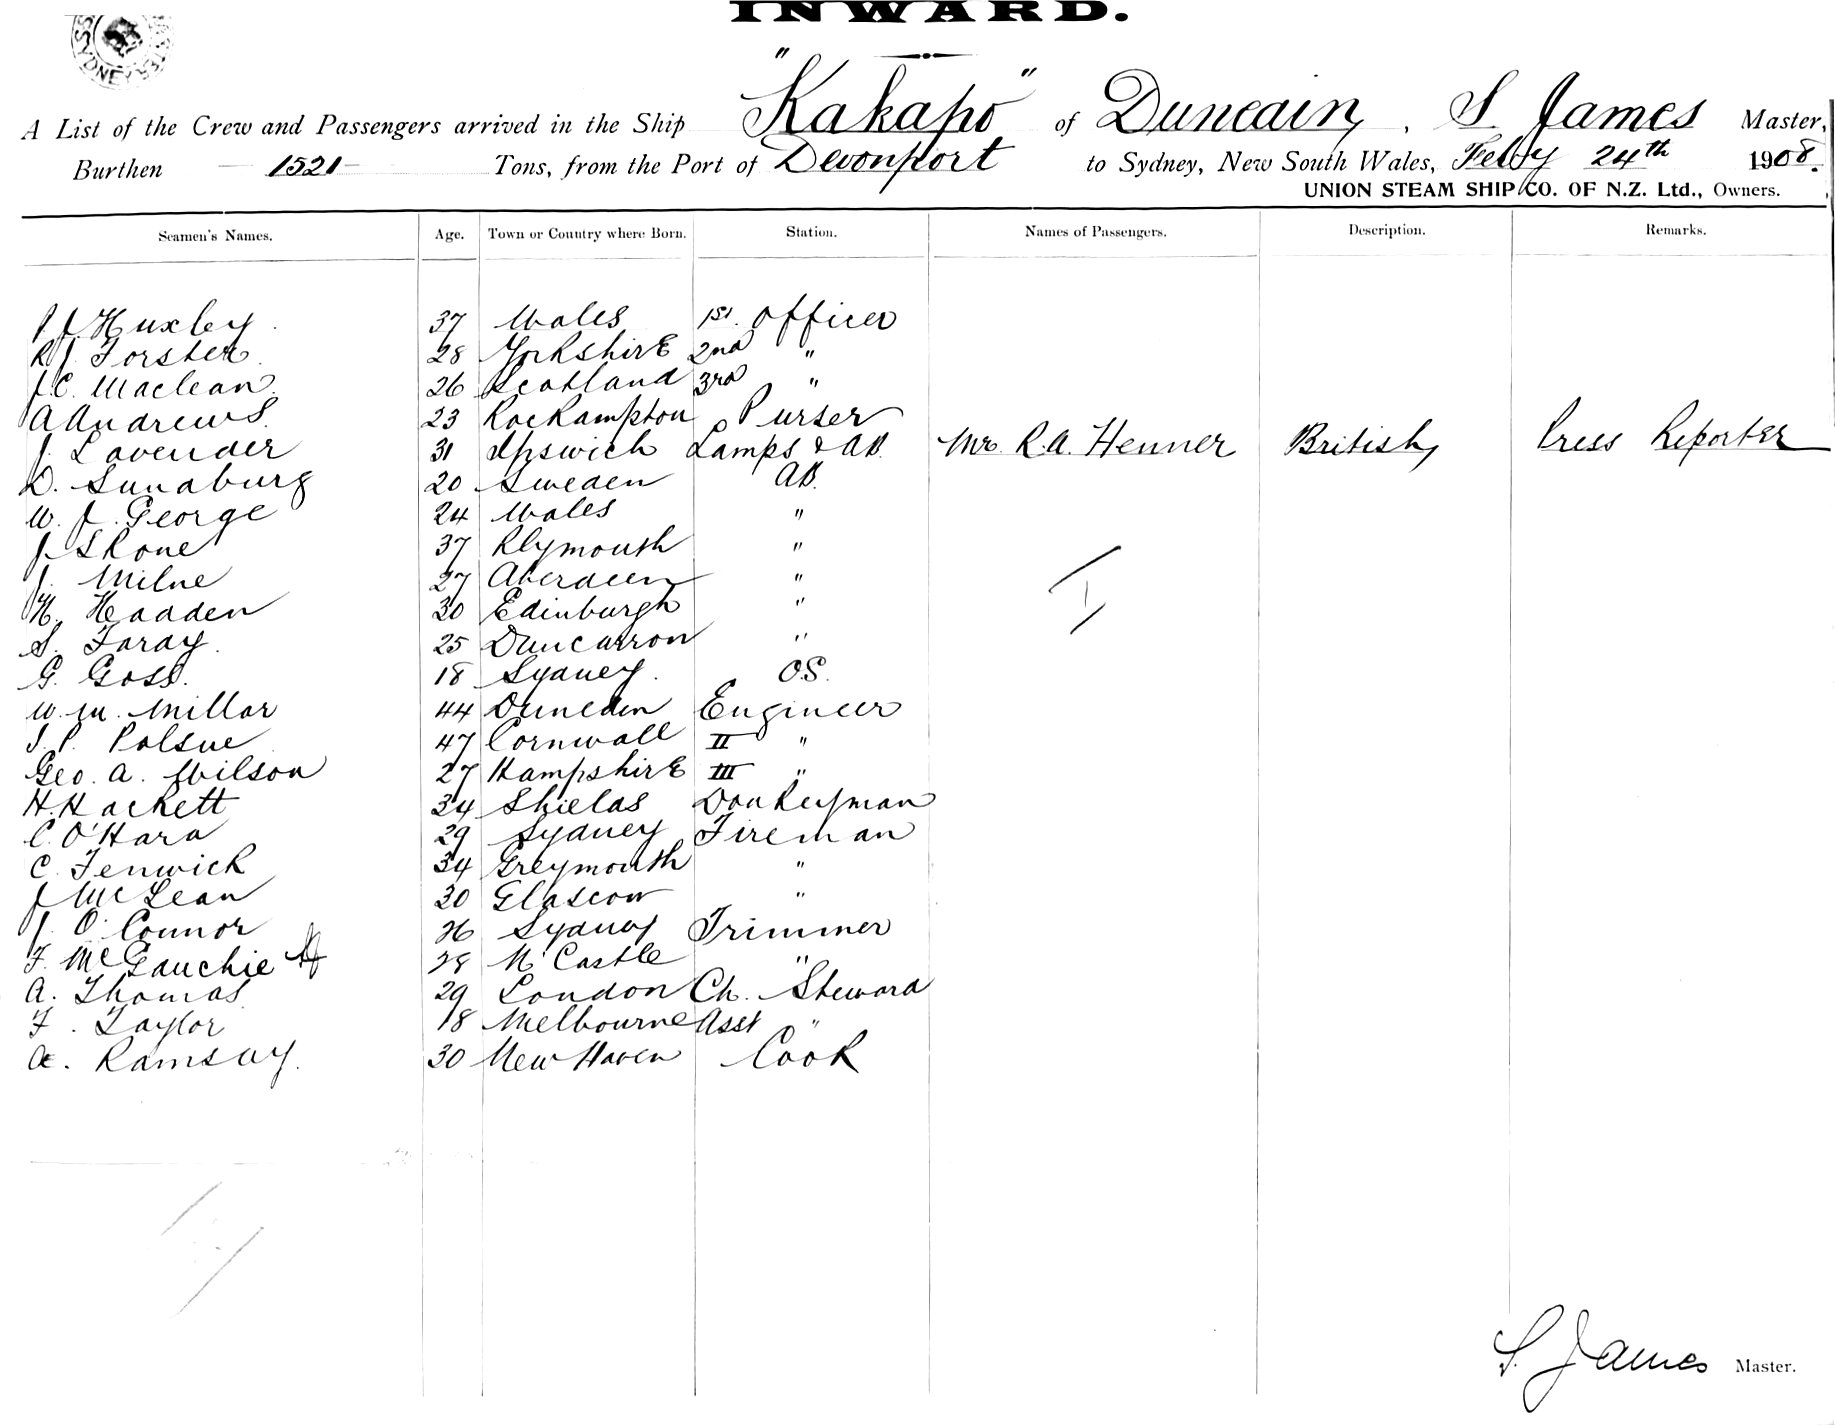 INWARD.
SYDNEY
A List of the Crew and Passengers arrived in the Ship "Kakapo" of Dunedin, S. James Master,
Burthen 1521 Tons, from the Port of Devonport to Sydney, New South Wales, Feby 24th 1908.
UNION STEAM SHIP CO. OF N.Z. Ltd., Owners.
Seamen's Names. Age. Town or Country where Born. Station. Names of Passengers. Description. Remarks.
Huxley 37 Wales 1st. Officer
R J Forster 28 Yorkshire 2nd "
J.C. Maclean 26 Scotland 3rd "
A Andrews 23 Rockampton Purser
J. Lavender 31 Ipswich Lamps & AB. Mr. R.A. Henner British Press Reporter
D. Sundburg 20 Sweden AB.
W. J. George 24 Wales "
J. Skone 37 Plymouth "
J. Milne 27 Aberdeen "
H. Hadden 30 Edinburgh "
S. Foray. 25 Duncarron "
G. Goss. 18 Sydney. O.S.
W. M. Millar 44 Dunedin Engineer
Polsue 47 Cornwall II "
Geo. A. Wilson 27 Hampshire III "
H. Hackett 34 Shields Donkeyman
C. O'Hara 29 Sydney Fireman
C. Fenwick 34 Greymouth "
J McLean 30 Glascow "
J. O'Connor 26 Sydney Trimmer
F. McGauchie 28 N'Castle "
A. Thomas 29 London Ch. Steward
F. Taylor 18 Melbourne Asst "
A. Ramsay. 30 New Haven Cook
S. James Master.